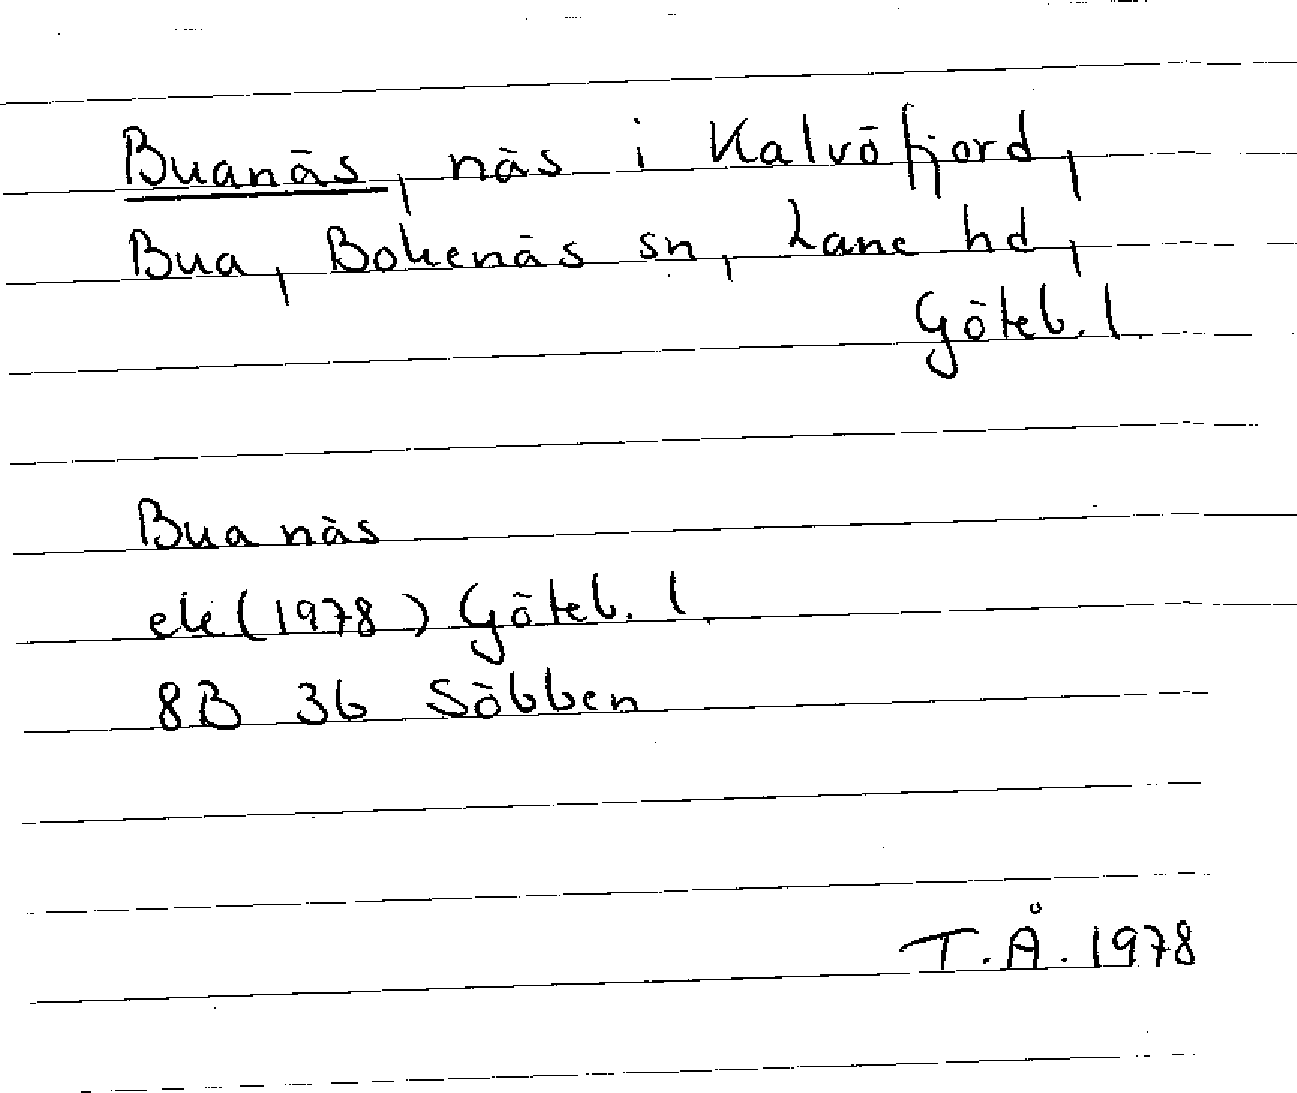 Buanäs, näs i Kalvöfjord,
Bua, Bokenäs sn, Lane hd,
Göteb. l.
Buanäs
ek (1978) Göteb. l.
8B 3b Säbben
T.Å. 1978